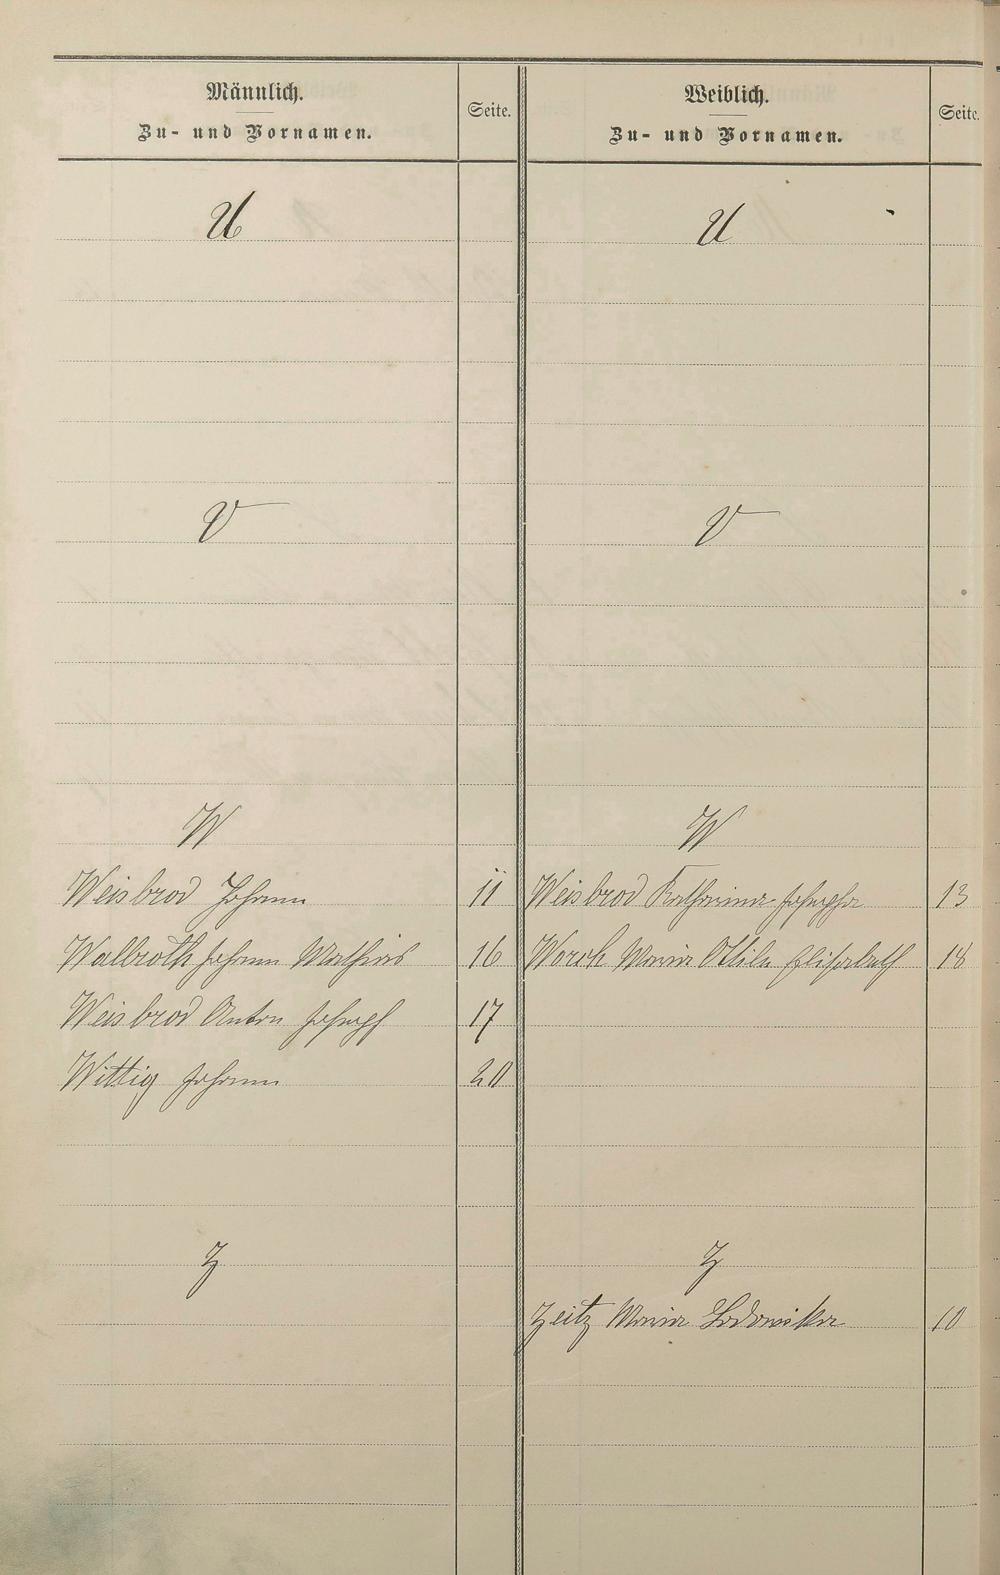 Männlich.
Zu- und Vornamen.
Seite.
Weiblich.
Zu- und Vornamen.
Seite.
U
U
V
V
W
W
Weisbrod Johann 11
Weisbrod Katharina Josepha 13
Walbroth Johann Mathias 16
Woroch Maria Ottilie Elisabeth 18
Weisbrod Anton Joseph 17
Wittig Johann 20
Z
Z
Zeitz Maria Lodowika 10